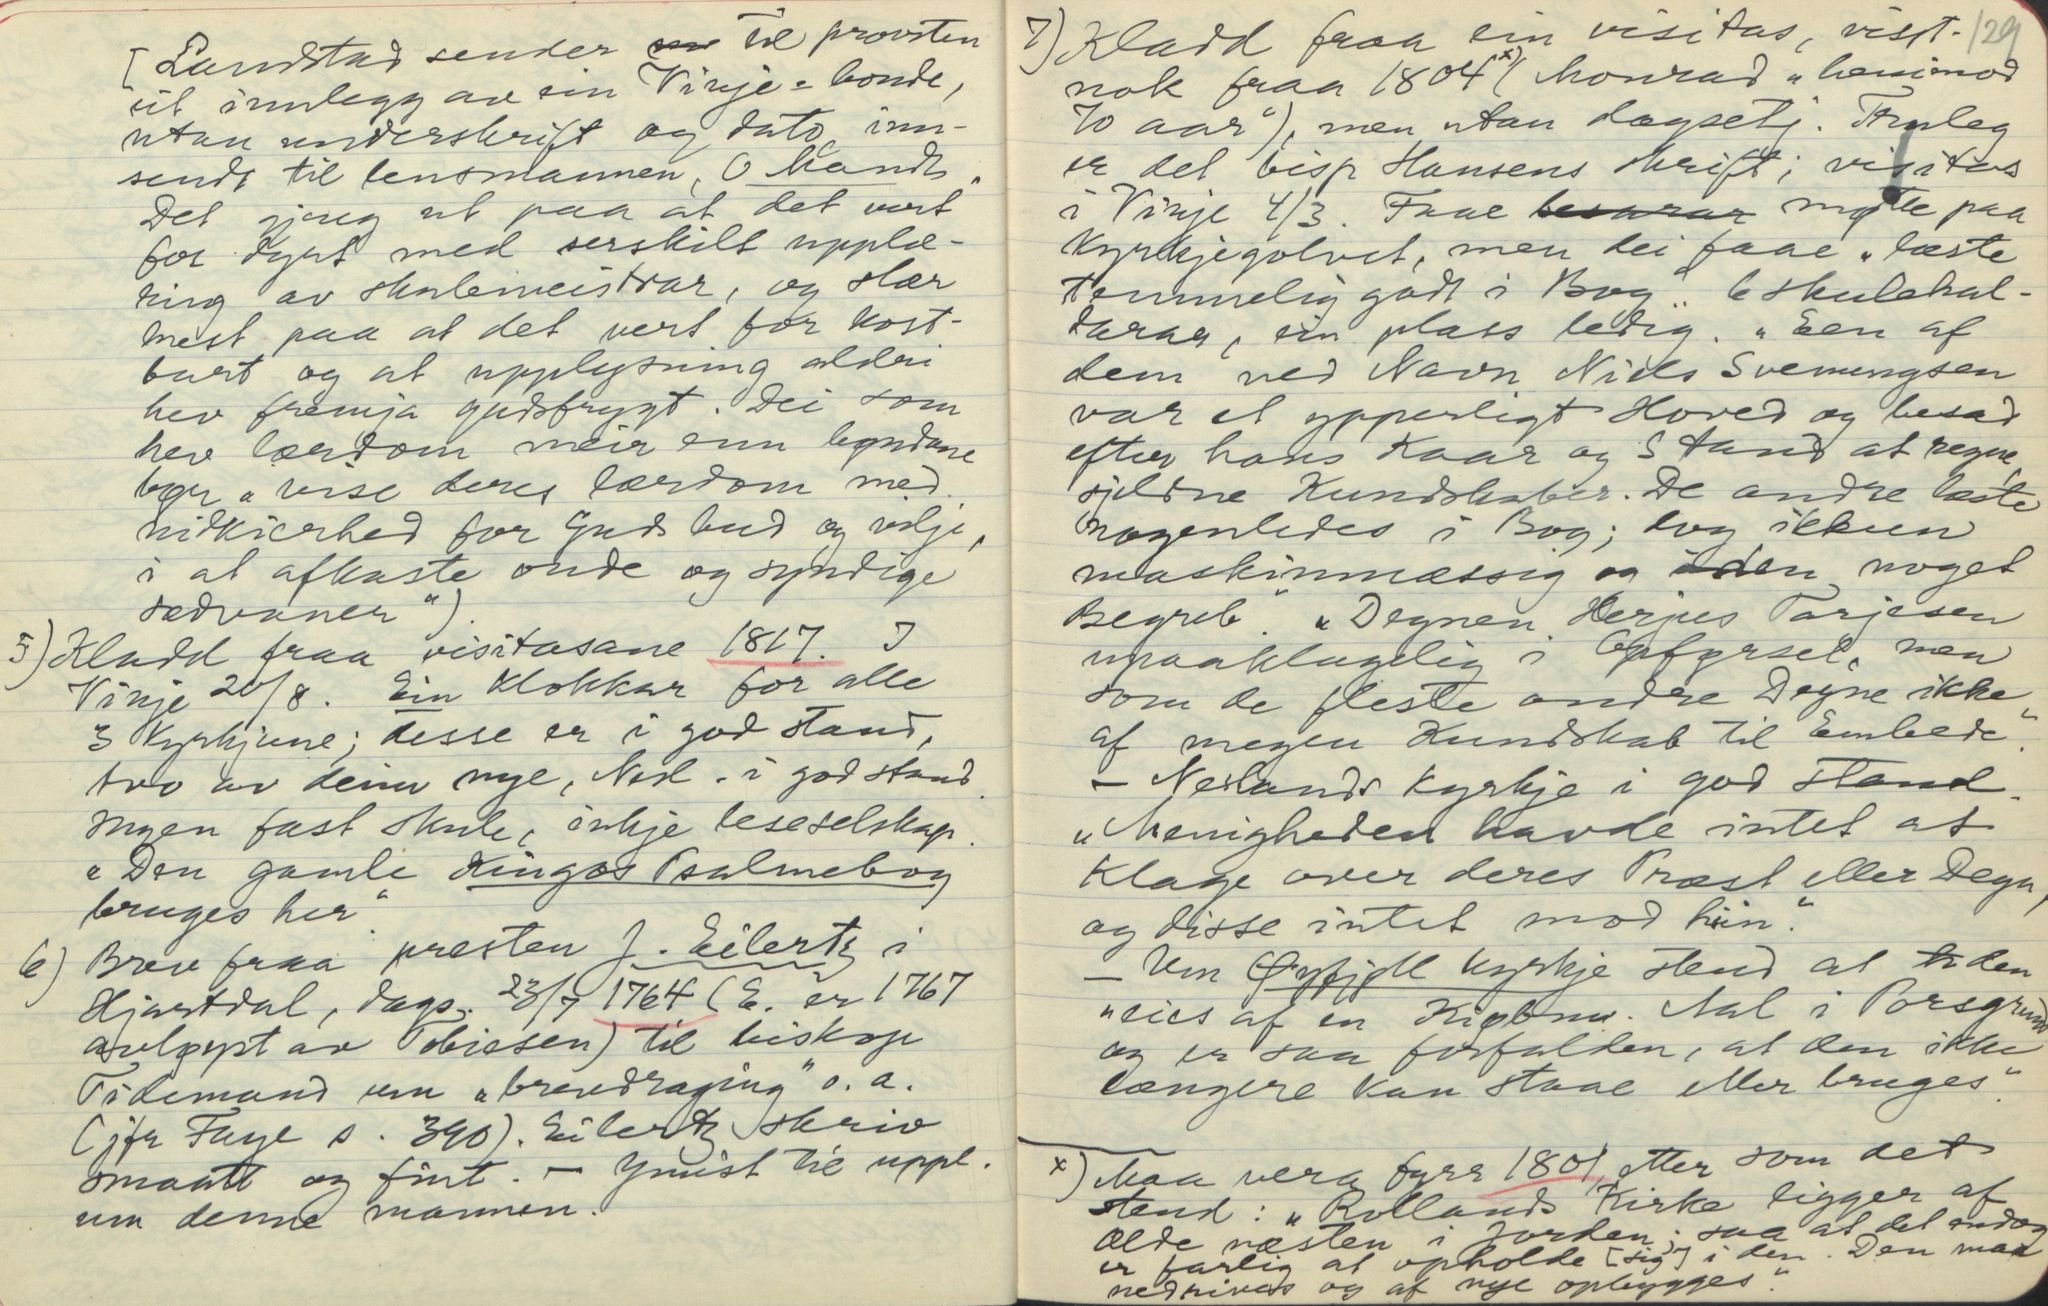 [Landstad sender til provsten
eit innlegg av ein Vinje-bonde,
utan underskrift og dato, inn-
sendt til lensmannen, O Mandt.
Det gjeng ut paa at det vert
for dyrt med serskilt upplæ-
ring av skulemeistrar, og slær
mest paa at det vert for kost-
bart og at upplysning aldri
hev fremja gudsfrygt. Dei som
hev lærdom meir enn bøndane
bør „vise deres lærdom med
nidkierhed for Guds bud og vilje,
i at afkaste onde og syndige
sædvaner“).
5) Kladd fraa visitasane 1817. I
Vinje 20/8. Ein klokkar for alle
3 kyrkjune; desse er i god stand,
tvo av deim nye, Nesl. i god stand.
Ingen fast skule, inkje leseselskap.
„Den gamle Kingos Psalmebog
bruges her“
6) Brev fraa presten J. Eilertz i
Hjartdal, dags. 23/7 1764 (E. er 1767
avløyst av Tobiesen) til biskop
Tidemand um „brevdraging“ o. a.
(jfr Faye s. 390). Eilertz skriv
smaatt og fint. – Ymist til uppl.
um denne mannen.
129
7) Kladd fraa ein visitas, visst-
nok fraa 1804x) (Monrad „henimod
70 aar“), men utan dagsetj. Truleg
er det bisp Hansens skrift; visitas
i Vinje 4/3. Faae møtte paa
kyrkjegolvet, men dei faae „læste
temmelig godt i Bog“. 6 skulehal-
darar, ein plass ledig. „Een af
dem ved Navn Niels Svenungsen
var et ypperligt Hoved og besad
efter hans Kaar og Stand at regne
sjeldne Kundskaber. De andre læste
nogenledes i Bog; dog ikkun
maskinmæssig og uden noget
Begreb“. „Degnen Herjus Tarjesen
upaaklagelig i Opførsel, men
som de fleste andre Degne ikke
af megen Kundskab til Embede“.
– Neslands kyrkje i god stand.
„Menigheden havde intet at
klage over deres Præst eller Degn,
og disse intet mod hin“.
– Um Øyfjell kyrkje stend at den
„eies af en Kiøbm. Aal i Porsgrund
og er saa forfalden, at den ikke
længere kan staae eller bruges“.
x) Maa vera fyrr 1801 etter som det
stend: „Rollands Kirke ligger af
Ælde næsten i Jorden; saa at det endog
er farlig at opholde [sig] i den. Den maa
nedrives og af nye opbygges“.